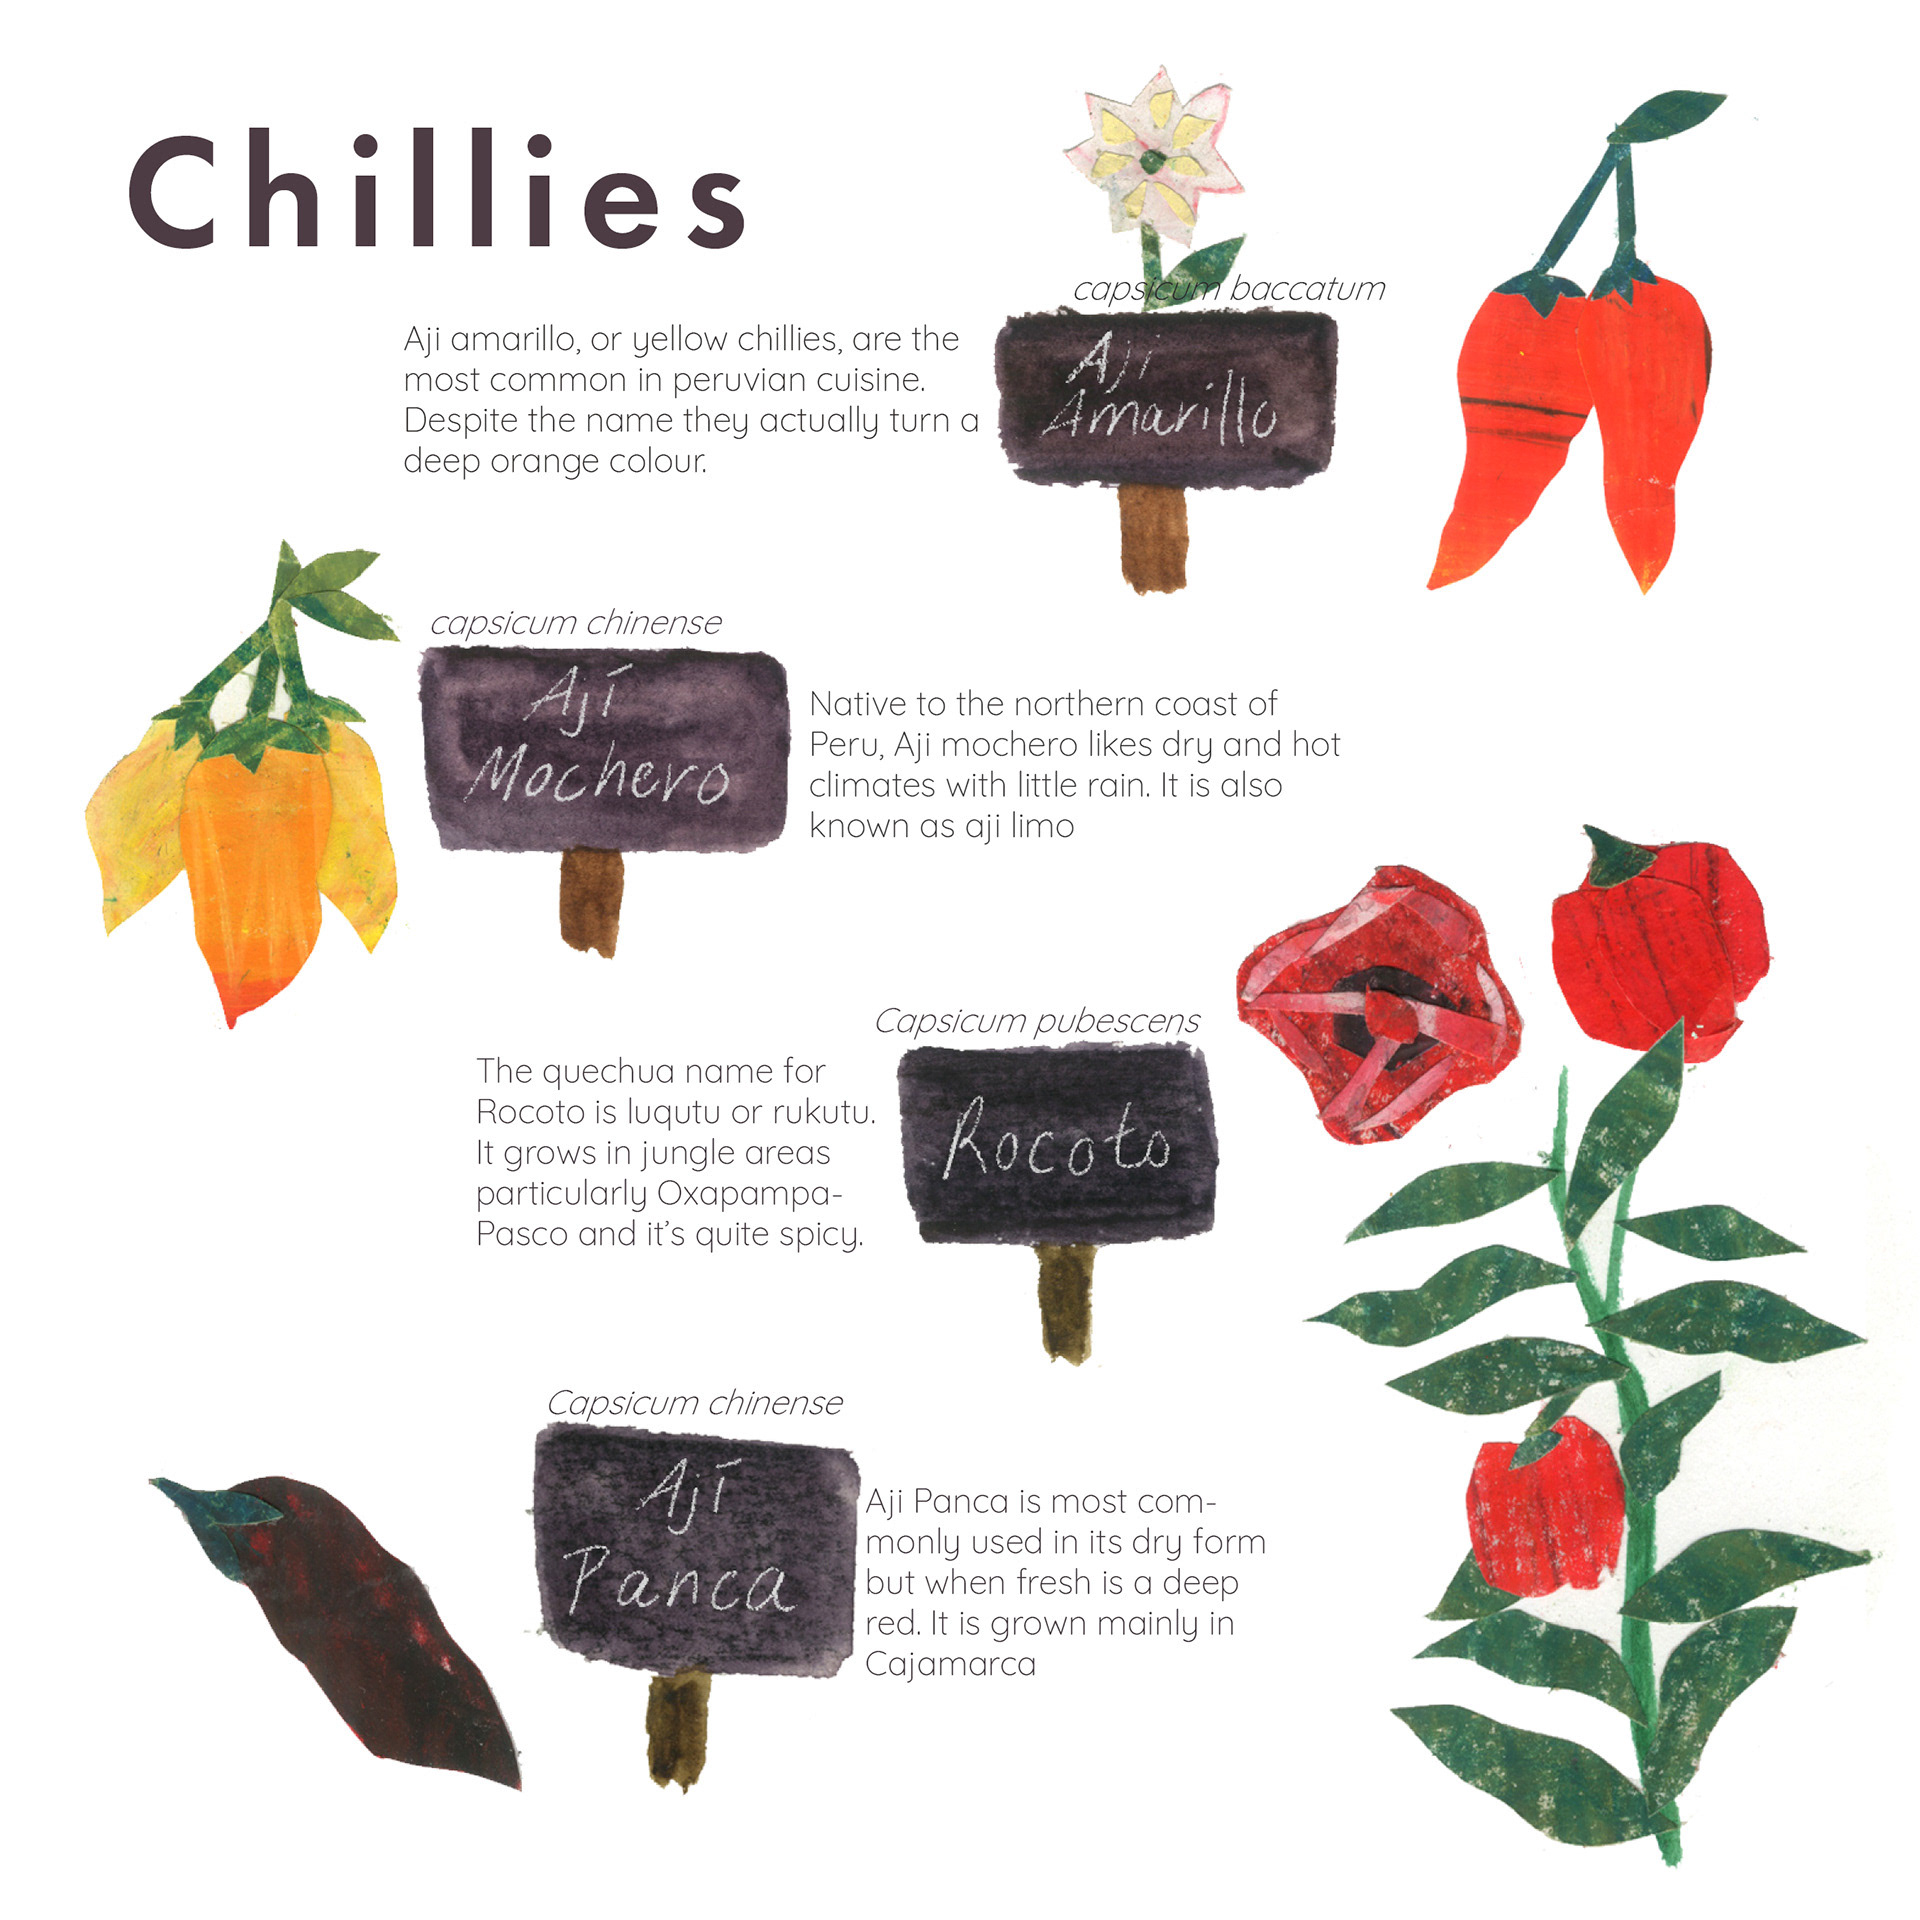 Chillies
capsicum baccatum
Aji
Amarillo
Aji amarillo, or yellow chillies, are the
most common in peruvian cuisine.
Despite the name they actually turn a
deep orange colour.
capsicum chinense
Ají
Mochero
Native to the northern coast of
Peru, Aji mochero likes dry and hot
climates with little rain. It is also
known as aji limo
Capsicum pubescens
Rocoto
The quechua name for
Rocoto is luqutu or rukutu.
It grows in jungle areas
particularly Oxapampa-
Pasco and it's quite spicy.
Capsicum chinense
Ají
Panca
Aji Panca is most com-
monly used in its dry form
but when fresh is a deep
red. It is grown mainly in
Cajamarca